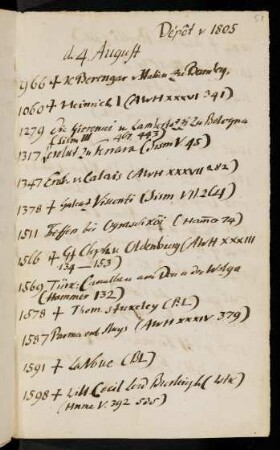 51
Depôt v 1805
d. 4 August
966 + K Berengar v
1060 + Heinrich I (AWH XXXVI 341)
1279 Die Gieremei u Lambertazzi zu Bologna
(Sism III 442, 443)
1317 (Sism V 45)
1347 Erob. v Calais (AWH XXXVII 282)
1378 + Galeaz Visconti (Sism VII 264)
1511 Treffen bei (Hamer 74)
1566 + Gf Chph v Oldenburg (AWH XXXIII
134 — 153)
1569 Türk. Canalbau am Don u der Wolga
(Hammer 132)
1578 + Thom. Stukeley (BL)
1587 Parma ent. Sluys (AWH XXXIV 379)
1591 + LaNoue (BL)
1598 + Will Cecil Lord Burleigh (
(Hume V. 392 505)